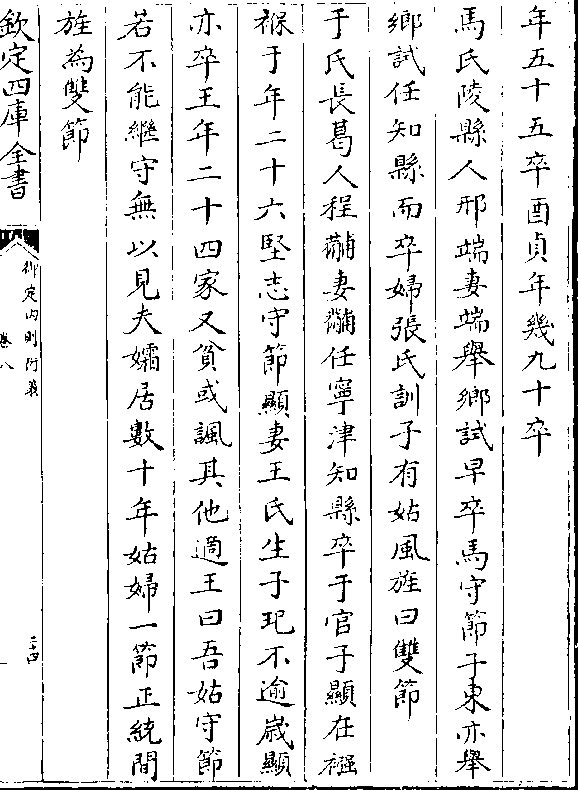 年五十五卒酉貞年幾九十卒
馬氏陵縣人邢端妻端舉鄉試早卒馬守節子東亦舉
鄉試任知縣而卒婦張氏訓子有姑風旌曰雙節
于氏長葛人程黼妻黼任寧津知縣卒于官子顯在襁
褓于年二十六堅志守節顯妻王氏生子玘不逾嵗顯
亦卒王年二十四家又貧或諷其他適王曰吾姑守節
若不能繼守無以見夫孀居數十年姑婦一節正統間
旌為雙節
欽定四庫全書
御定内則衍義
卷八
二十四